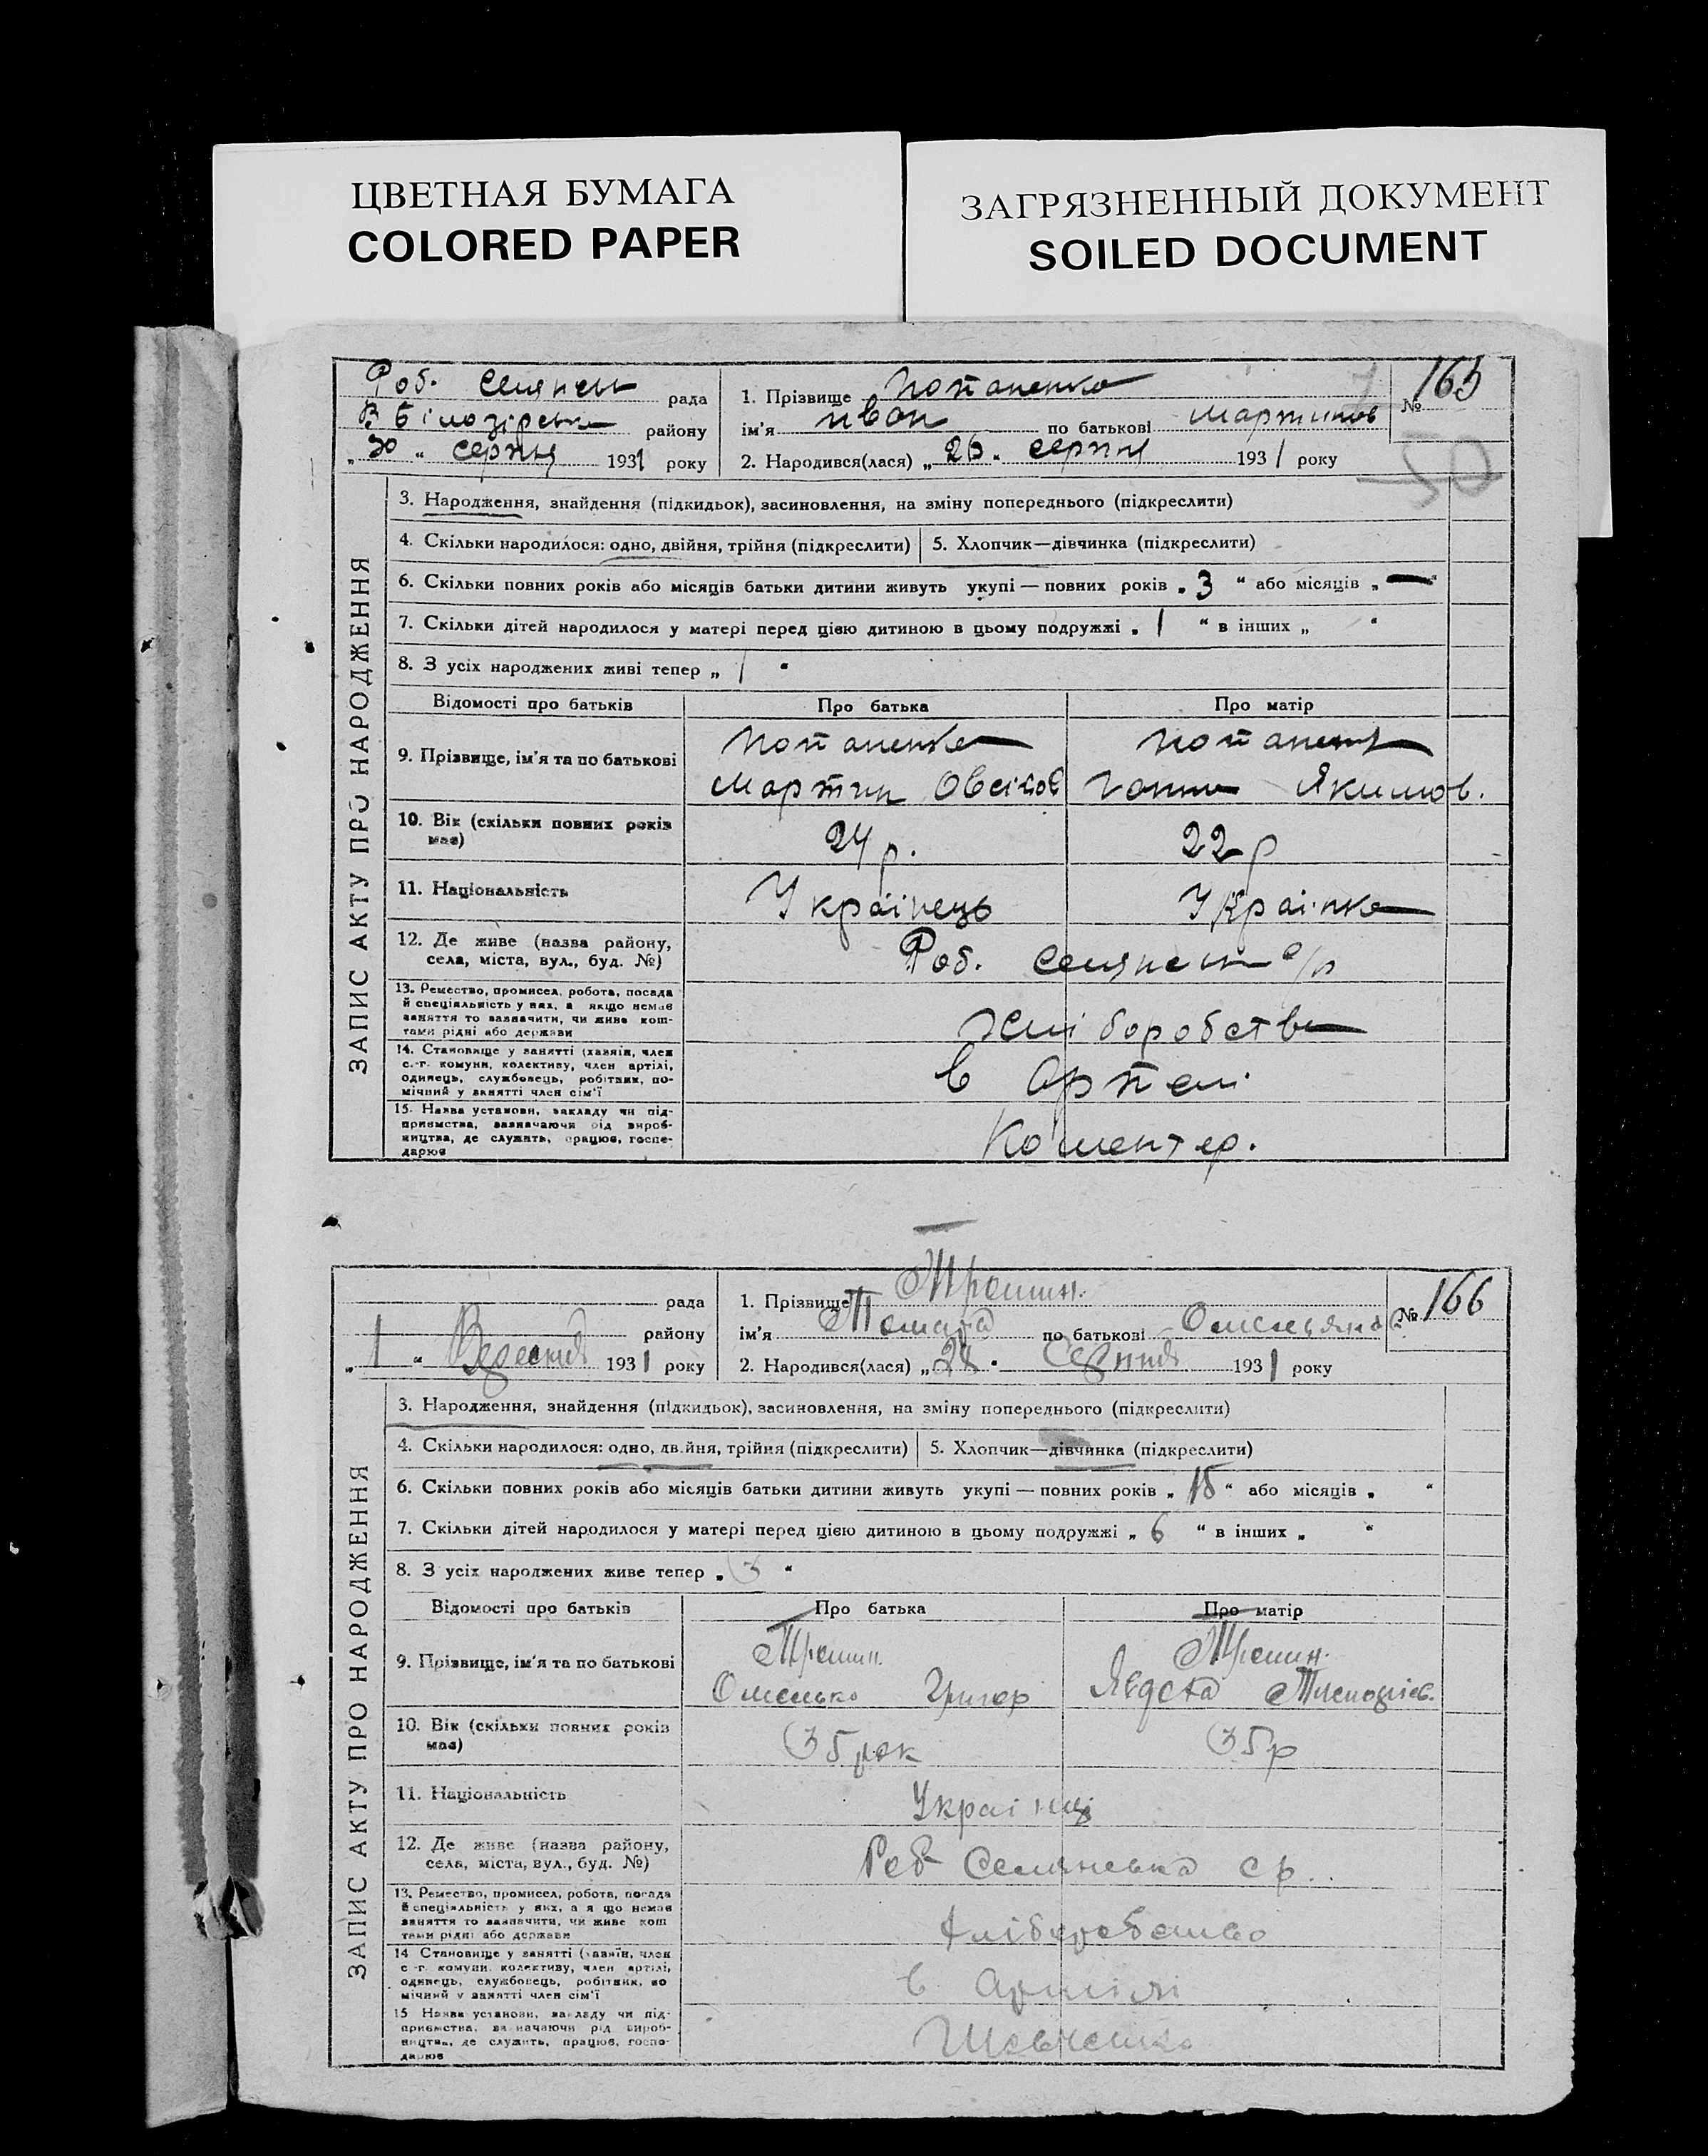 ЦВЕТНАЯ БУМАГА
COLORED PAPER
ЗАГРЯЗНЕННЫЙ ДОКУМЕНТ
SOILED DOCUMENT
ЗАПИС АКТУ ПРО НАРОДЖЕННЯ
Роб. Селянськ рада
В Білозірськ району
„30“ серпня 1931 року
1. Прізвище Потапенко
№ 165
50
ім'я Иван по батькові Мартинов
2. Народився(лася) „26. серпня 1931 року
3. Народження, знайдення (підкидьок), засиновлення, на зміну попереднього (підкреслити)
4. Скільки народилося: одно, двійня, трійня (підкреслити) 5. Хлопчик—дівчинка (підкреслити)
6. Скільки повних років або місяців батьки дитини живуть укупі — повних років „3“ або місяців „—“
7. Скільки дітей народилося у матері перед цією дитиною в цьому подружжі „1“ в інших „ “
8. З усіх народжених живі тепер „1“
Відомості про батьків Про батька Про матір
9. Прізвище, ім'я та по батькові
Потапенко
Мартин Овсійов
Потапенк
Ганна Якимов.
10. Вік (скільки повних років має)
24 р. 22 р
11. Національність Українець Українка
12. Де живе (назва району,
села, міста, вул., буд. №)
Роб. Селянськ с/р
13. Ремество, промисел, робота, посада
й спеціяльність у них, а якщо немає
заняття то зазначити, чи живе кош-
тами рідні або держави
Хліборобство
14. Становище у занятті (хазяїн, член
с.-г. комуни, колективу, член артілі,
одинець, службовець, робітник, по-
мічний у занятті член сім'ї
в Артелі
15. Назва установи, закладу чи під-
приємства, зазначаючи рід вироб-
ництва, де служить, працює, госпо-
дарює
Коментер.
ЗАПИС АКТУ ПРО НАРОДЖЕННЯ
рада
району
„1“ Вересня 1931 року
1. Прізвище
№ 166
ім'я Томара по батькові Омеляно
2. Народився(лася) „28. Серпня 1931 року
3. Народження, знайдення (підкидьок), засиновлення, на зміну попереднього (підкреслити)
4. Скільки народилося: одно, двійня, трійня (підкреслити) 5. Хлопчик—дівчинка (підкреслити)
6. Скільки повних років або місяців батьки дитини живуть укупі — повних років „15“ або місяців „ “
7. Скільки дітей народилося у матері перед цією дитиною в цьому подружжі „6“ в інших „ “
8. З усіх народжених живе тепер „3“
Відомості про батьків Про батька Про матір
9. Прізвище, ім'я та по батькові
Омелько Григор
Явдоха
10. Вік (скільки повних років має)
35 рок 35 р
11. Національність Українці
12. Де живе (назва району,
села, міста, вул., буд. №)
Роб Селянська с р.
13. Ремество, промисел, робота, посада
й спеціяльність у них, а я що немає
заняття то зазначити, чи живе кош
тами рідні або держави
Хліборобство
14 Становище у занятті (хазяїн, член
с-г. комуни. колективу, член артілі,
одинець, службовець, робітник, по
мічний у занятті член сім'ї
в Артілі
15 Назва установи, закладу чи під-
приємства, зазначаючи рід вироб-
ництва, де служить, працює, госпо-
дарює
Шевченко